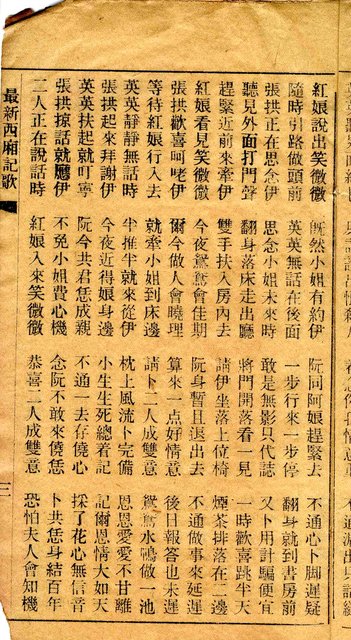 紅娘說出笑微微 既然小姐有約伊 阮同阿娘趕緊去 不通心卜脚遲疑
隨時引路做頭前 英英無話在後面 一步行來一步停 翻身就到書房前
張拱正在思念伊 思念小姐未來時 敢是無影只代誌 又卜用計騙便宜
聽見外面打門聲 翻身落床走出聽 將門開落看一見 一時歡喜跳半天
趕緊近前來牽伊 雙手扶入房內去 請伊坐落上位椅 煙茶排落在二邊
紅娘看見笑微微 今夜鴛鴦會佳期 阮身暫且退出去 不通做事來延遲
張拱歡喜呵咾伊 爾今做人會曉理 算來一点好情意 後日報答也未遲
等待紅娘行入去 就牽小姐到床邊 請卜二人成雙意 鴛鴦水鴨做一池
英英靜靜無話時 半推半就來從伊 枕上風流卜完備 恩恩愛愛不甘離
張拱起來拜謝伊 今夜近得娘身邊 小生生死總着記 記爾恩情大如天
英英扶起就叮寧 阮今共君恁成親 不通一去存僥心 採了花心無信音
張拱掠話就應伊 不免小姐費心機 念阮不敢來僥恁 卜共恁身結百年
二人正在說話時 紅娘入來笑微微 恭喜二人成雙意 恐怕夫人會知機
最新西廂記歌 二